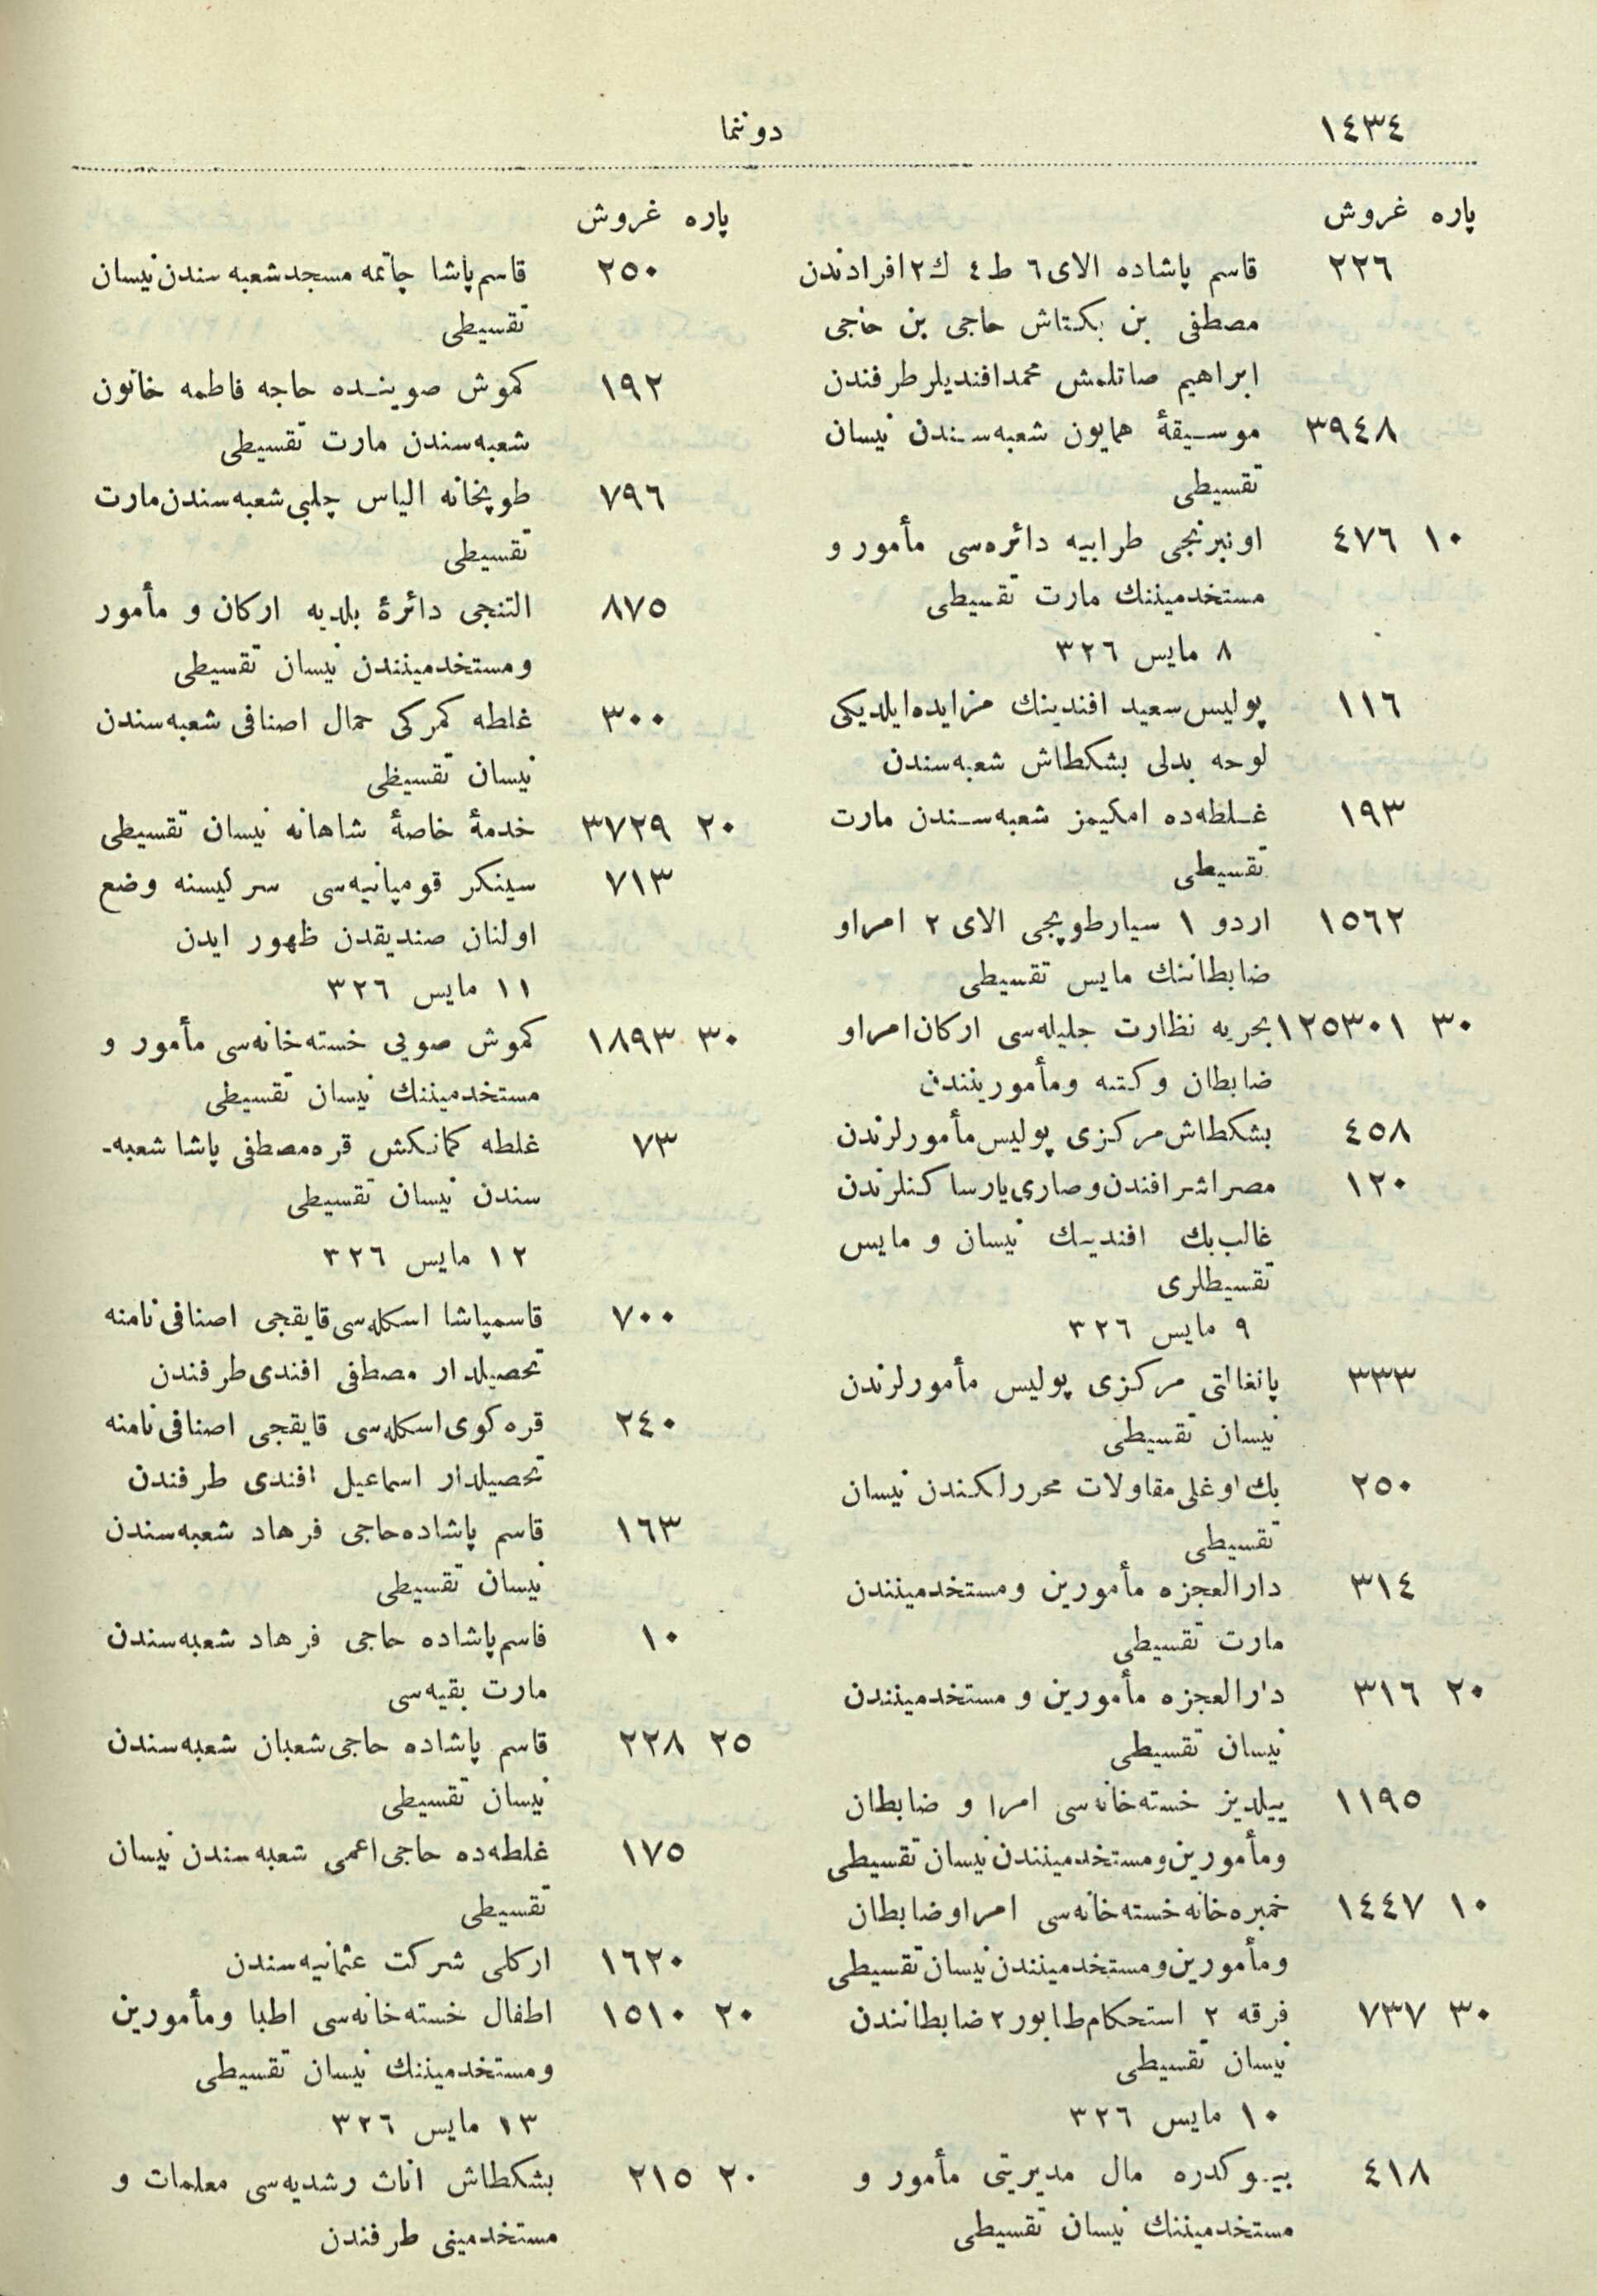 ١٤٣٤
دوننما
پاره غروش
٢٢٦ قاسم پاشاده الای ٦ ط ٤ ك ٢ افرادندن
مصطفی بن بكتاش حاجی بن حاجی
ابراهیم صاتلمش محمد افندیلر طرفندن
٣٩٤٨ موسیقهٔ همایون شعبه سندن نیسان
تقسیطی
١٠ ٤٧٦ اونبرنجی طرابیه دائره سی مأمور و
مستخدمیننك مارت تقسیطی
٨ مایس ٣٢٦
١١٦ پولیس سعید افندینك مزایده ایلدیكی
لوحه بدلی بشكطاش شعبه سندن
١٩٣ غلطه ده امكیمز شعبه سندن مارت
تقسیطی
١٥٦٢ اردو ١ سیار طوپجی الای ٢ امرا و
ضابطاننك مایس تقسیطی
٣٠ ١٢٥٣٠١ بحریه نظارت جلیله سی اركان امرا و
ضابطان و كتبه ومأمورینندن
٤٥٨ بشكطاش مركزی پولیس مأمورلرندن
١٢٠ مصر اشرافندن و صاری یار ساكنلرندن
غالب بك افندینك نیسان و مایس
تقسیطلری
٩ مایس ٣٢٦
٣٣٣ پانغالتی مركزی پولیس مأمورلرندن
نیسان تقسیطی
٢٥٠ بك اوغلی مقاولات محررلكندن نیسان
تقسیطی
٣١٤ دارالعجزه مأمورین ومستخدمینندن
مارت تقسیطی
٢٠ ٣١٦ دارالعجزه مأمورین و مستخدمینندن
نیسان تقسیطی
١١٩٥ ییلدیز خسته خانه سی امرا و ضابطان
ومأمورین ومستخدمینندن نیسان تقسیطی
١٠ ١٤٤٧ خمبره خانه خسته خانه سی امرا و ضابطان
ومأمورین ومستخدمینندن نیسان تقسیطی
٣٠ ٧٣٧ فرقه ٢ استحكام طابور ٢ ضابطانندن
نیسان تقسیطی
١٠ مایس ٣٢٦
٤١٨ بیوكدره مال مدیریتی مأمور و
مستخدمیننك نیسان تقسیطی
پاره غروش
٢٥٠ قاسم پاشا چاتمه مسجد شعبه سندن نیسان
تقسیطی
١٩٢ كموش صوینده حاجه فاطمه خاتون
شعبه سندن مارت تقسیطی
٧٩٦ طوپخانه الیاس چلبی شعبه سندن مارت
تقسیطی
٨٧٥ التنجی دائرهٔ بلدیه اركان و مأمور
ومستخدمینندن نیسان تقسیطی
٣٠٠ غلطه كمركی حمال اصنافی شعبه سندن
نیسان تقسیطی
٢٠ ٣٧٢٩ خدمهٔ خاصهٔ شاهانه نیسان تقسیطی
٧١٣ سینكر قومپانیه سی سرئیسنه وضع
اولنان صندیقدن ظهور ایدن
١١ مایس ٣٢٦
٣٠ ١٨٩٣ كموش صویی خسته خانه سی مأمور و
مستخدمیننك نیسان تقسیطی
٧٣ غلطه كمانكش قره مصطفی پاشا شعبه-
سندن نیسان تقسیطی
١٢ مایس ٣٢٦
٧٠٠ قاسمپاشا اسكله سی قایقجی اصنافی نامنه
تحصیلدار مصطفی افندی طرفندن
٢٤٠ قره كوی اسكله سی قایقجی اصنافی نامنه
تحصیلدار اسماعیل افندی طرفندن
١٦٣ قاسم پاشاده حاجی فرهاد شعبه سندن
نیسان تقسیطی
١٠ قاسم پاشاده حاجی فرهاد شعبه سندن
مارت بقیه سی
٢٥ ٢٢٨ قاسم پاشاده حاجی شعبان شعبه سندن
نیسان تقسیطی
١٧٥ غلطه ده حاجی اعمی شعبه سندن نیسان
تقسیطی
١٦٢٠ اركلی شركت عثمانیه سندن
٢٠ ١٥١٠ اطفال خسته خانه سی اطبا ومأمورین
ومستخدمیننك نیسان تقسیطی
١٣ مایس ٣٢٦
٢٠ ٢١٥ بشكطاش اناث رشدیه سی معلمات و
مستخدمینی طرفندن